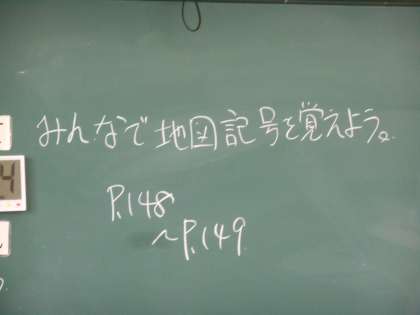 みんなで地図記号を覚えよう。
P.148
～P.149
4